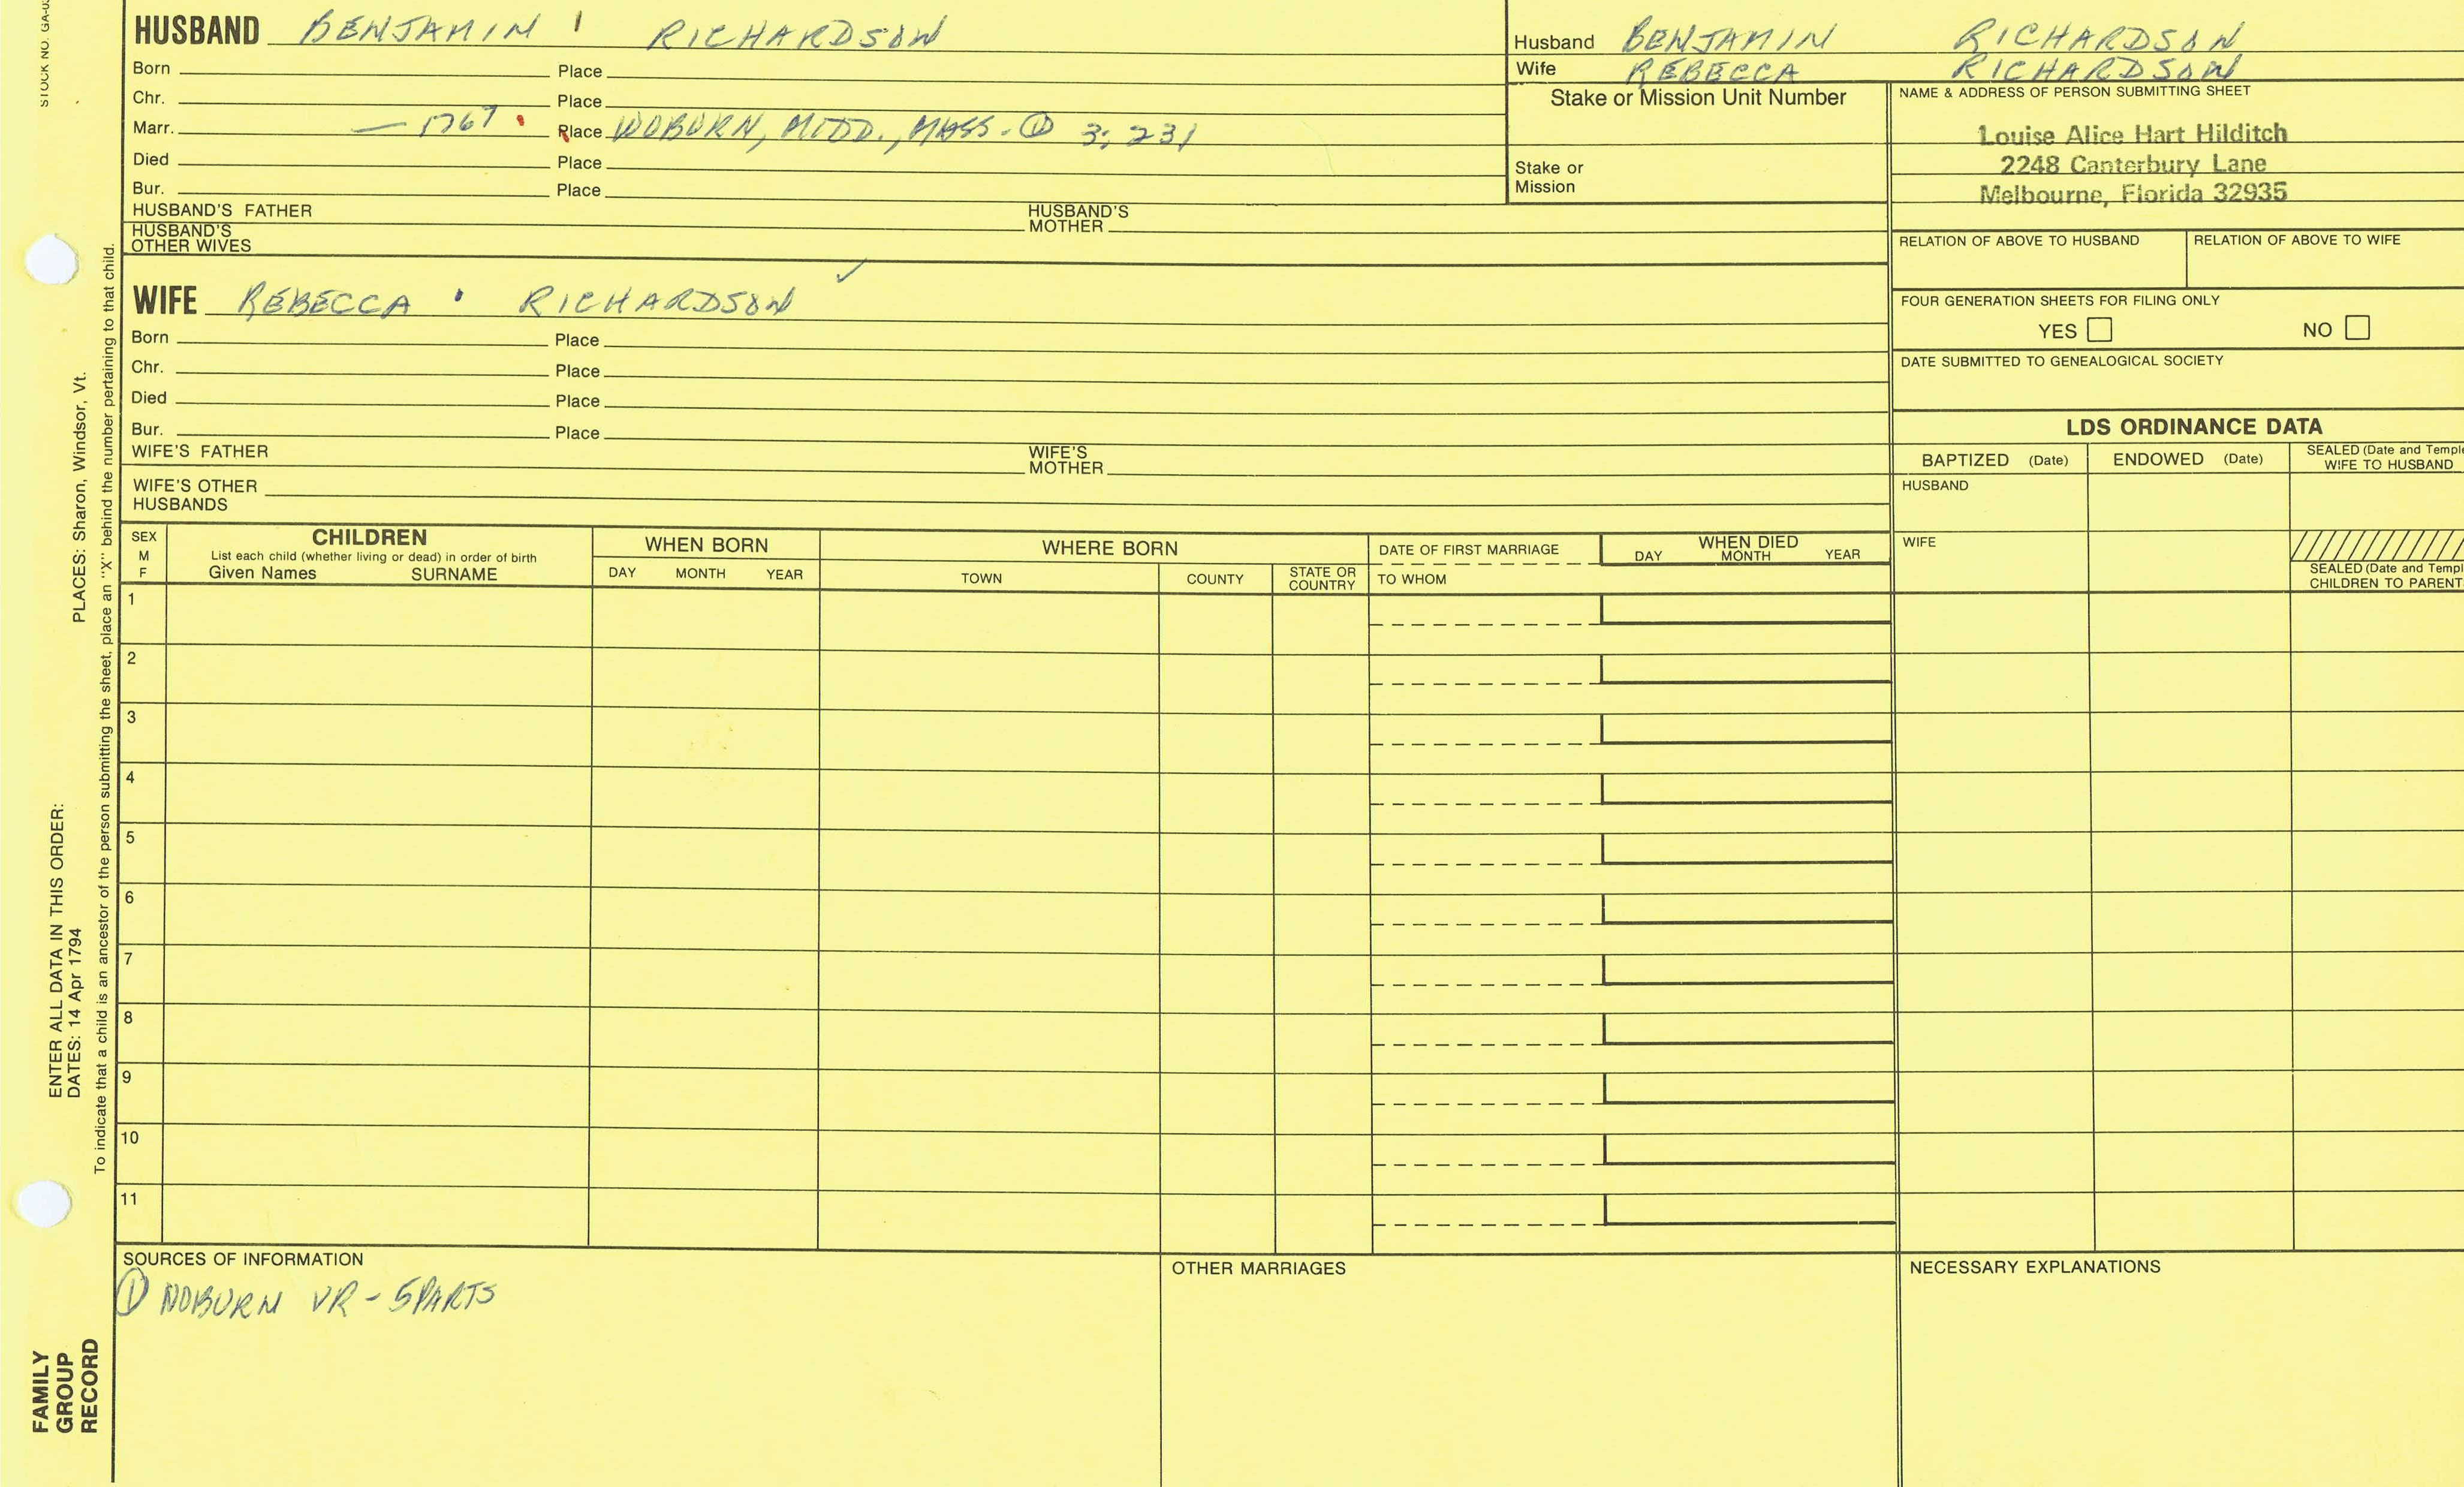 STOCK NO. GA-0
HUSBAND BENJAMIN RICHARDSON
Born Place
Chr. Place
Marr. — 1767 Place WOBURN, MIDD., MASS. ① 3; 231
Died Place
Bur. Place
HUSBAND'S FATHER HUSBAND'S MOTHER
HUSBAND'S OTHER WIVES
Husband BENJAMIN RICHARDSON
Wife REBECCA RICHARDSON
Stake or Mission Unit Number
Stake or
Mission
NAME & ADDRESS OF PERSON SUBMITTING SHEET
Louise Alice Hart Hilditch
2248 Canterbury Lane
Melbourne, Florida 32935
RELATION OF ABOVE TO HUSBAND RELATION OF ABOVE TO WIFE
FOUR GENERATION SHEETS FOR FILING ONLY
YES NO
DATE SUBMITTED TO GENEALOGICAL SOCIETY
WIFE REBECCA RICHARDSON ✓
Born Place
Chr. Place
Died Place
Bur. Place
WIFE'S FATHER WIFE'S MOTHER
WIFE'S OTHER
HUSBANDS
LDS ORDINANCE DATA
BAPTIZED (Date) ENDOWED (Date) SEALED (Date and Temple
WIFE TO HUSBAND
HUSBAND
WIFE
SEALED (Date and Templ
CHILDREN TO PARENT
SEX
M
F
CHILDREN
List each child (whether living or dead) in order of birth
Given Names SURNAME
WHEN BORN
DAY MONTH YEAR
WHERE BORN
TOWN COUNTY STATE OR COUNTRY
DATE OF FIRST MARRIAGE
TO WHOM
WHEN DIED
DAY MONTH YEAR
1
2
3
4
5
6
7
8
9
10
11
SOURCES OF INFORMATION
① WOBURN VR - 5 PARTS
OTHER MARRIAGES
NECESSARY EXPLANATIONS
ENTER ALL DATA IN THIS ORDER:
DATES: 14 Apr 1794 PLACES: Sharon, Windsor, Vt.
To indicate that a child is an ancestor of the person submitting the sheet, place an "X" behind the number pertaining to that child.
FAMILY
GROUP
RECORD